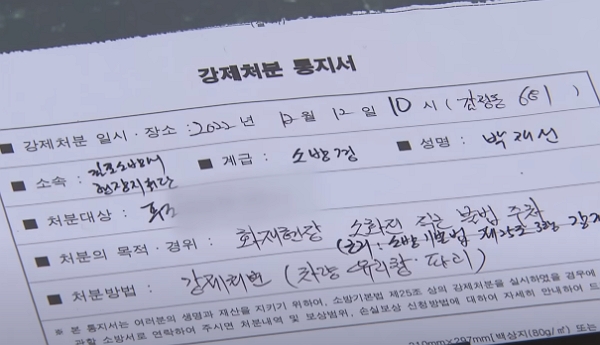 강제처분 통지서
■ 강제처분 일시·장소 : 2022 년 12 월 12 일 10 시 (검량동 681)
■ 소속 : 현장지휘단 ■ 계급 : 소방경 ■ 성명 : 박재선
■ 처분대상 :
■ 처분의 목적·경위 : 화재현장 소화전 불법 주차
(근거 : 소방기본법 제25조 3항
■ 처분방법 : 강제처분 (차량 유리창
※ 본 통지서는 여러분의 생명과 재산을 지키기 위하여, 소방기본법 제25조 상의 강제처분을 실시하였을 경우에
관할 소방서로 연락하여 주시면 처분내역 및 보상범위, 손실보상 신청방법에 대하여 자세히 안내하여 드
210mm×297mm[백상지(80g/㎡) 또는